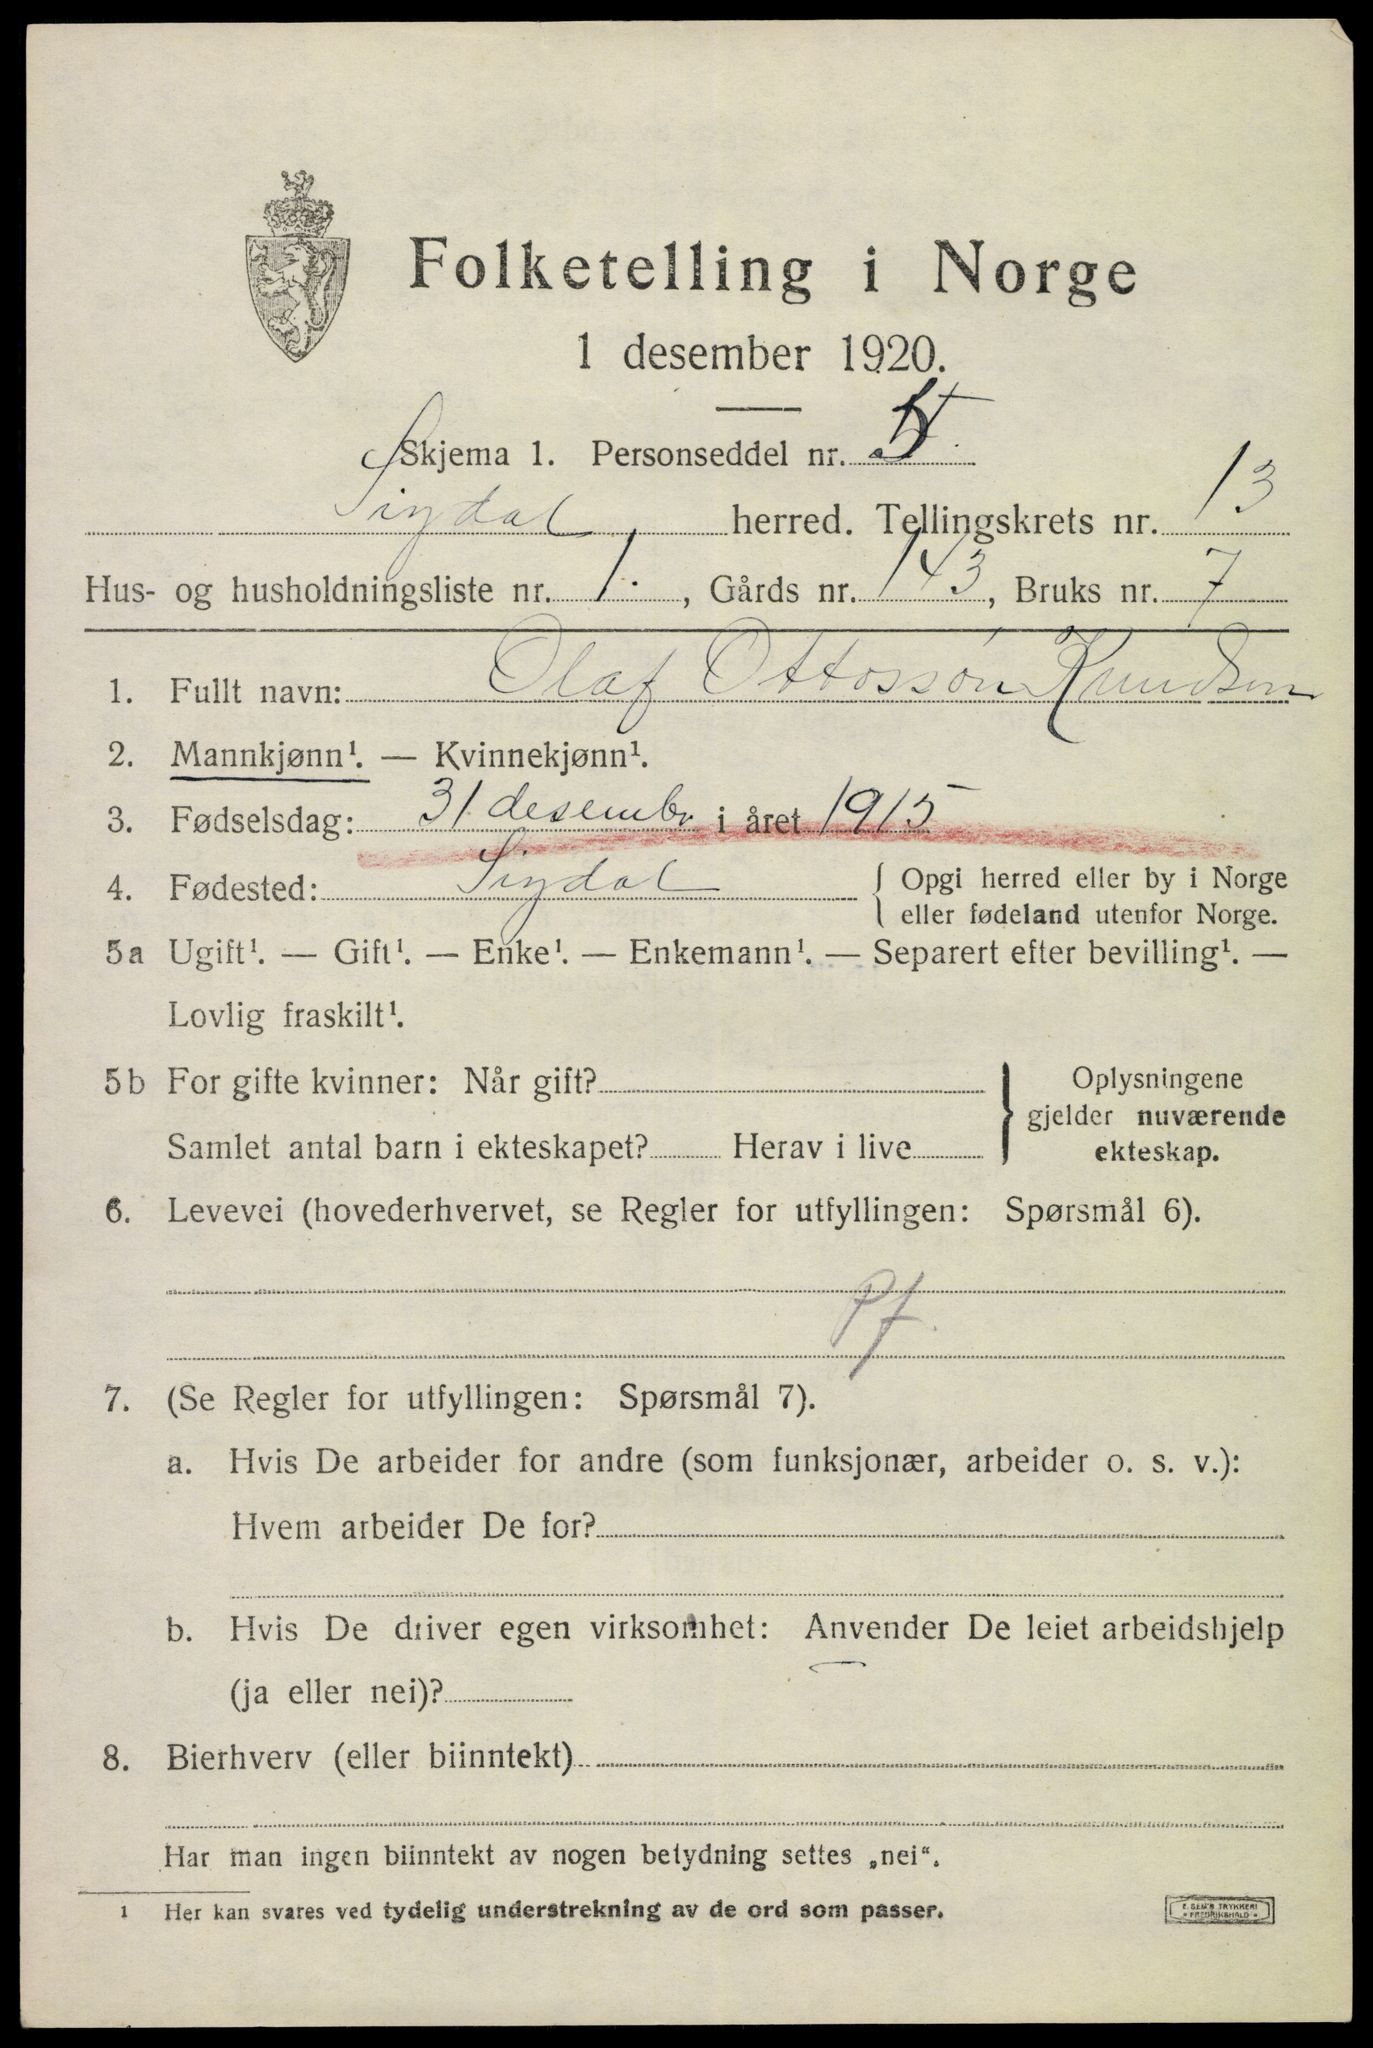 Folketelling i Norge
1 desember 1920.
Skjema 1. Personseddel nr.
Sigdal herred. Tellingskrets nr. 13
Hus- og husholdningsliste nr. 1., Gårds nr. 143, Bruks nr. 7
1. Fullt navn: Olaf Ottossøn Knudsen
2. Mannkjønn¹. — Kvinnekjønn¹.
3. Fødselsdag: 31 desembr i året 1915
4. Fødested: Sigdal { Opgi herred eller by i Norge
eller fødeland utenfor Norge.
5a Ugift¹. — Gift¹. — Enke¹. — Enkemann¹. — Separert efter bevilling¹. —
Lovlig fraskilt¹.
5b For gifte kvinner: Når gift?
Samlet antal barn i ekteskapet? Herav i live
} Oplysningene
gjelder nuværende
ekteskap.
6. Levevei (hovederhvervet, se Regler for utfyllingen: Spørsmål 6).
Pf.
7. (Se Regler for utfyllingen: Spørsmål 7).
a. Hvis De arbeider for andre (som funksjonær, arbeider o. s. v.):
Hvem arbeider De for?
b. Hvis De driver egen virksomhet: Anvender De leiet arbeidshjelp
(ja eller nei)?
8. Bierhverv (eller biinntekt)
Har man ingen biinntekt av nogen betydning settes „nei“.
1 Her kan svares ved tydelig understrekning av de ord som passer.
E. SEM'S TRYKKERI
FREDRIKSHALD